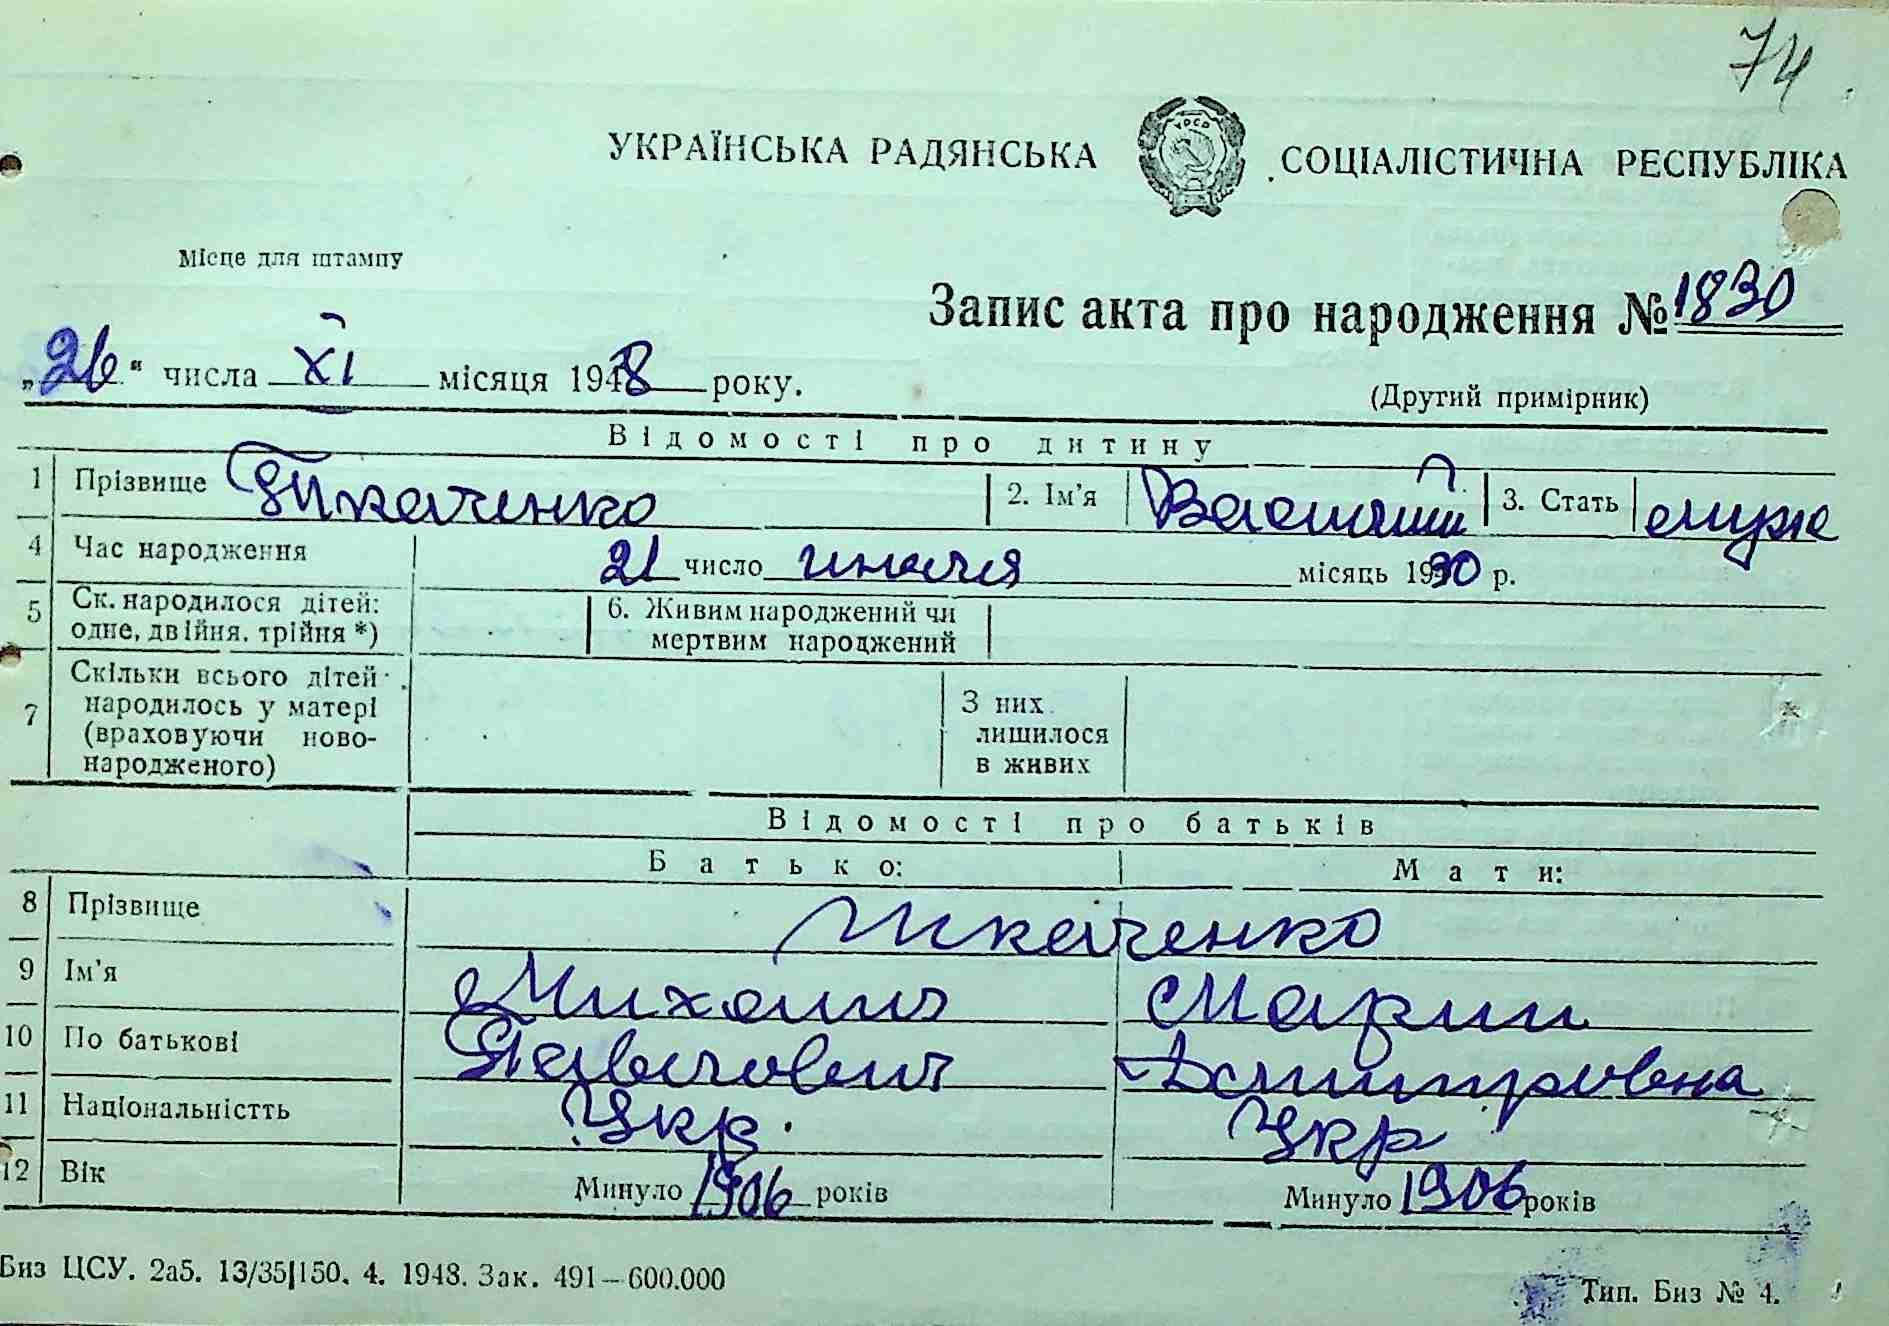 74
УКРАЇНСЬКА РАДЯНСЬКА СОЦІАЛІСТИЧНА РЕСПУБЛІКА
УРСР
Місце для штампу
Запис акта про народження № 1830
„26“ числа XI місяця 1948 року.
(Другий примірник)
Відомості про дитину
1 Прізвище Ткаченко 2. Ім'я Василий 3. Стать муж
4 Час народження 21 число июля місяць 1930 р.
5 Ск. народилося дітей: 6. Живим народжений чи
одне, двійня, трійня *) мертвим народжений
7 Скільки всього дітей З них
народилось у матері лишилося
(враховуючи ново- в живих
народженого)
Відомості про батьків
Батько: Мати:
8 Прізвище Ткаченко
9 Ім'я Михаил Мария
10 По батькові Павлович Дмитровна
11 Національністть Укр. Укр
12 Вік Минуло 1906 років Минуло 1906 років
Биз ЦСУ. 2а5. 13/35|150. 4. 1948. Зак. 491—600.000
Тип. Биз № 4.